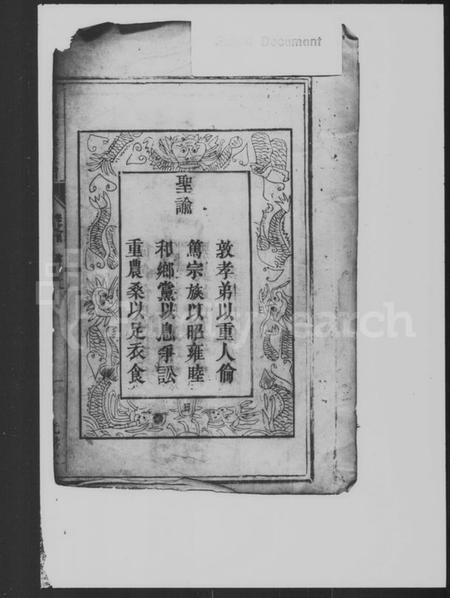 聖諭
敦孝弟以重人倫
篤宗族以昭雍睦
和鄉黨以息爭訟
重農桑以足衣食
Document